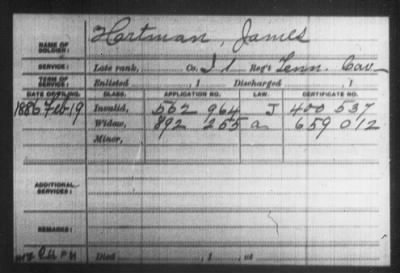 NAME OF SOLDIER: Hartman, James
SERVICE: Late rank, Co. I 1 Reg't Tenn. Cav
TERM OF SERVICE: Enlisted , 1 Discharged , 1
DATE OF FILING. CLASS. APPLICATION NO. LAW. CERTIFICATE NO.
1886 Feb-19 Invalid, 562 964 J 400 537
Widow, 892 255 a 659 012
Minor,
ADDITIONAL SERVICES:
REMARKS:
Died , 1 , at